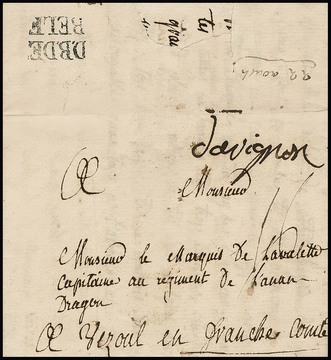 DBDE
BELF
22 aoust
Davignon
A Monsieur
Monsieur le Marquis De Lavalette
Capitaine au regiment De
Dragon
A Vezoul en franche Comté